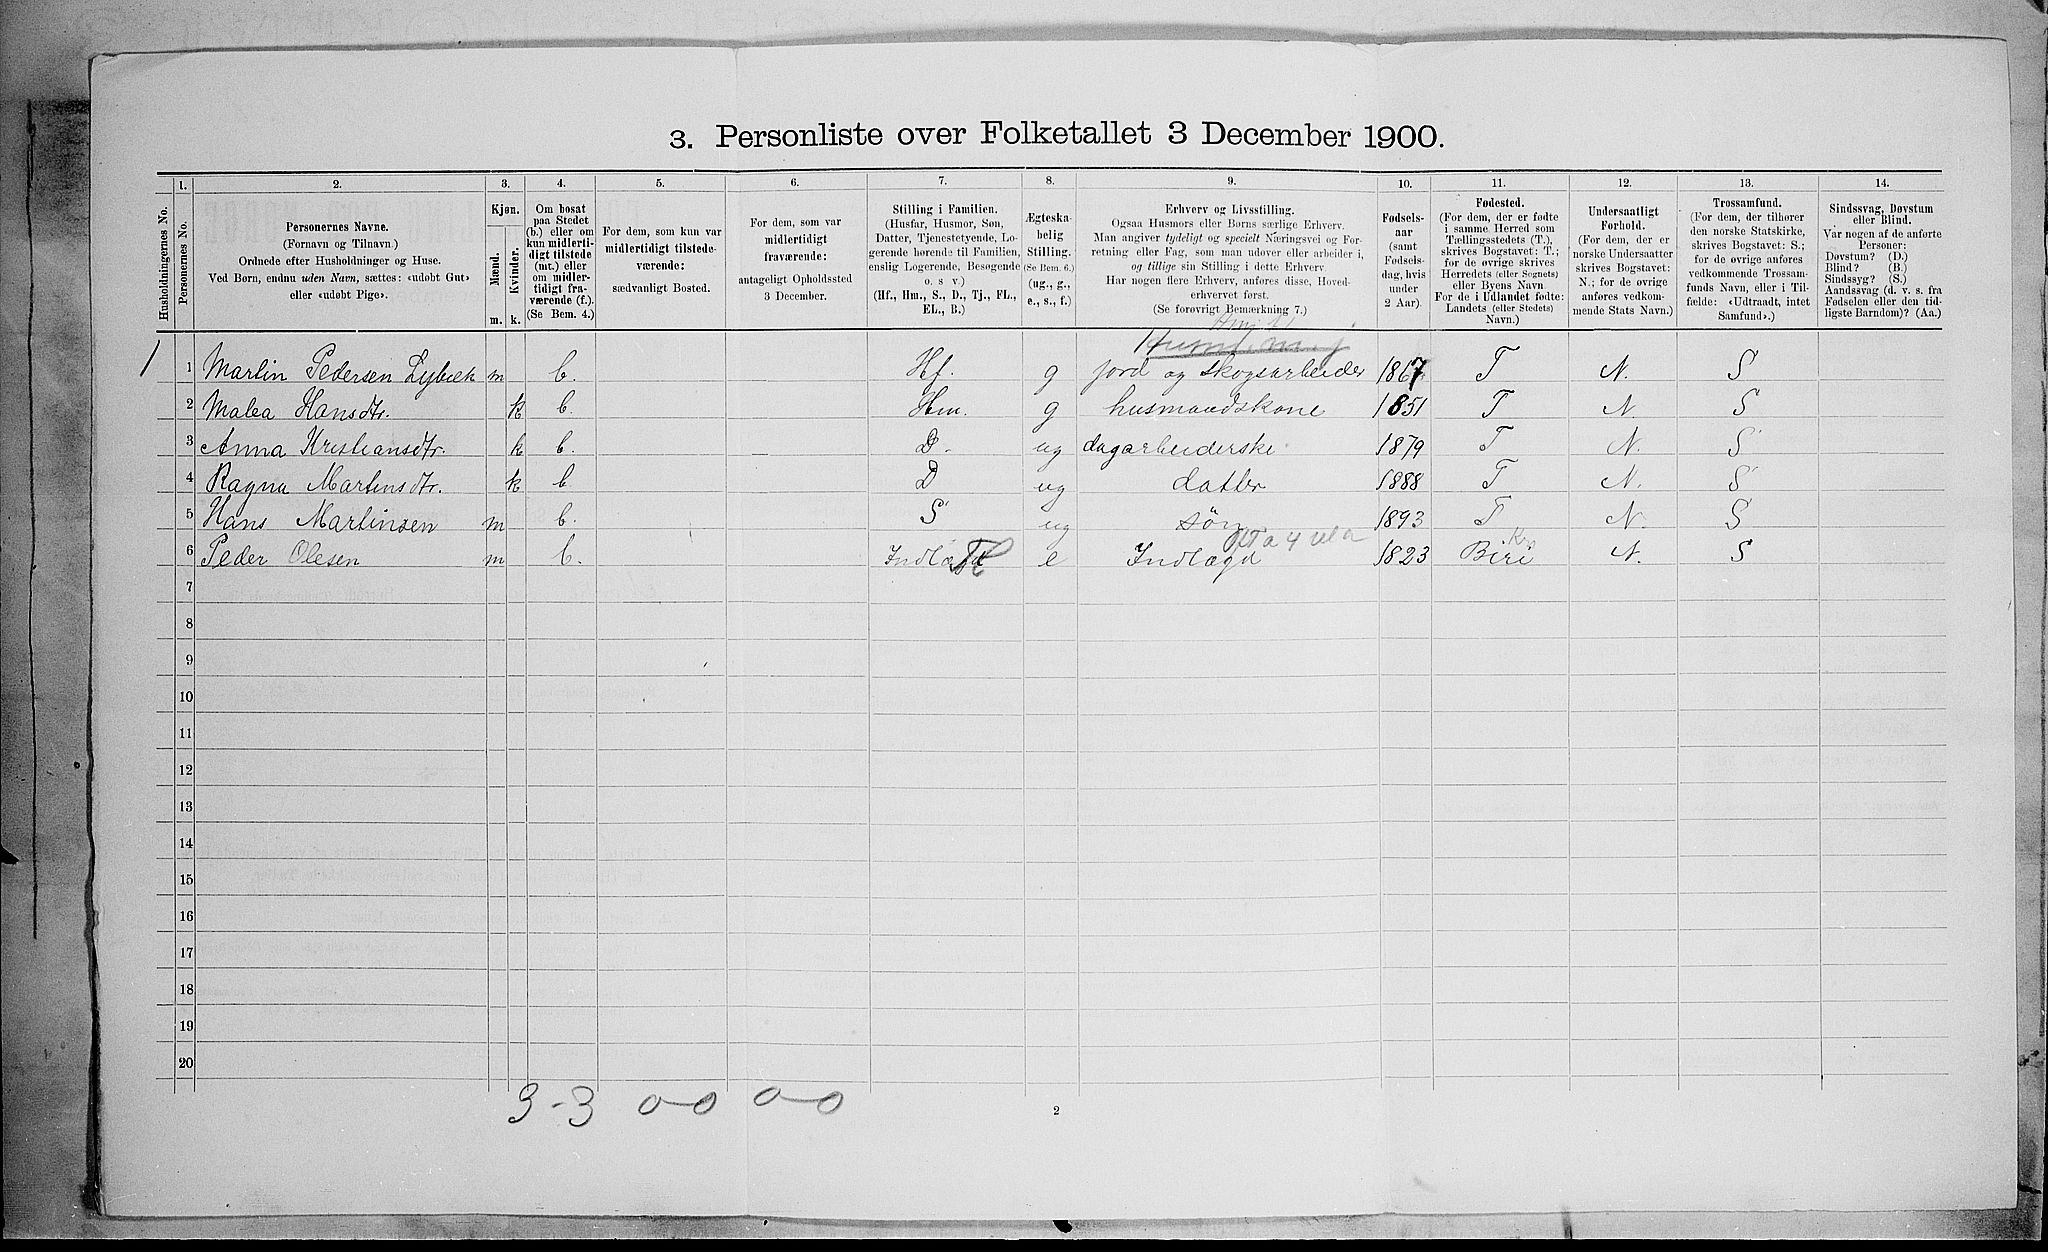 3. Personliste over Folketallet 3 December 1900.
1. 2. 3. 4. 5. 6. 7. 8. 9. 10. 11. 12. 13. 14.
Husholdningernes No.
Personernes No.
Personernes Navne.
(Fornavn og Tilnavn.)
Ordnede efter Husholdninger og Huse.
Ved Børn, endnu uden Navn, sættes: «udøbt Gut»
eller «udøbt Pige».
Kjøn.
Mænd.
Kvinder.
m. k.
Om bosat
paa Stedet
(b.) eller om
kun midlerti-
digt tilstede
(mt.) eller
om midler-
tidigt fra-
værende (f.).
(Se Bem. 4.)
For dem, som kun var
midlertidigt tilstede-
værende:
sædvanligt Bosted.
For dem, som var
midlertidigt
fraværende:
antageligt Opholdssted
3 December.
Stilling i Familien.
(Husfar, Husmor, Søn,
Datter, Tjenestetyende, Lo-
gerende hørende til Familien,
enslig Logerende, Besøgende
o. s. v.)
(Hf., Hm., S., D., Tj., FL.,
EL., B.)
Ægteska-
belig
Stilling.
(Se Bem. 6.)
(ug., g.,
e., s., f.)
Erhverv og Livsstilling.
Ogsaa Husmors eller Børns særlige Erhverv.
Man angiver tydeligt og specielt Næringsvei og For-
retning eller Fag, som man udover eller arbeider i,
og tillige sin Stilling i dette Erhverv.
Har nogen flere Erhverv, anføres disse, Hoved-
erhvervet først.
(Se forøvrigt Bemærkning 7.)
Fødsels-
aar
(samt
Fødsels-
dag, hvis
under
2 Aar).
Fødested.
(For dem, der er fødte
i samme Herred som
Tællingsstedets (T.),
skrives Bogstavet: T.;
for de øvrige skrives
Herredets (eller Sognets)
eller Byens Navn.
For de i Udlandet fødte:
Landets (eller Stedets)
Navn.)
Undersaatligt
Forhold.
(For dem, der er
norske Undersaatter
skrives Bogstavet:
N.; for de øvrige
anføres vedkom-
mende Stats Navn.)
Trossamfund.
(For dem, der tilhører
den norske Statskirke,
skrives Bogstavet: S.;
for de øvrige anføres
vedkommende Trossam-
funds Navn, eller i Til-
fælde: «Udtraadt, intet
Samfund».)
Sindssvag, Døvstum
eller Blind.
Var nogen af de anførte
Personer:
Døvstum? (D.)
Blind? (B.)
Sindssyg? (S.)
Aandssvag (d. v. s. fra
Fødselen eller den tid-
ligste Barndom)? (Aa.)
1 1 Martin Pedersen Lybæk m b. Hf. g jord og skogsarbeider 1867 T N. S
2 Malea Hansdtr. k b. Hm. g husmandskone 1851 T N S
3 Anna Kristiansdtr. k b. D. ug dagarbeiderske 1879 T N. S
4 Ragna Martinsdtr. k b D ug datter 1888 T N. S
5 Hans Martinsen m b. S ug søn 1893 T N. S
6 Peder Olesen m b. e Indlagd 1823 Biri N. S
7
8
9
10
11
12
13
14
15
16
17
18
19
20
3-3 0-0 0-0
2